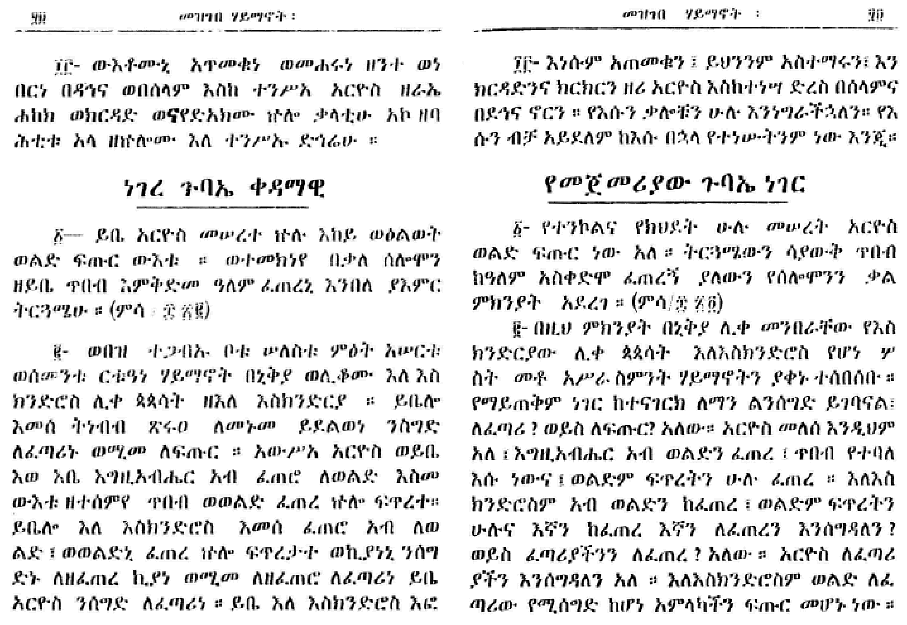 ፶፬ መዝገበ ሃይማኖት ፡
፲፫- ውእቶሙኒ አጥመቁነ ወመሐሩነ ዘንተ ወነ
በርነ በዳኅና ወበሰላም እስከ ተንሥአ አርዮስ ዘራኤ
ሐከክ ወክርዳድ ወናየድእክሙ ኵሎ ቃላቲሁ አኮ ዘባ
ሕቲቱ አላ ዘኵሎሙ እለ ተንሥኡ ድኅሬሁ ።
ነገረ ጉባኤ ቀዳማዊ
፩— ይቤ አርዮስ መሠረተ ኵሉ እከይ ወፅልወት
ወልድ ፍጡር ውእቱ ። ወተመክነየ በቃለ ሰሎሞን
ዘይቤ ጥበብ እምቅድመ ዓለም ፈጠረኒ እንበለ ያእምር
ትርጓሜሁ ። (ምሳ ፰ ፳፪)
፪- ወበዝ ተጋብኡ ቦቱ ሠለስቱ ምዕት አሠርቱ
ወሰመንቱ ርቱዓነ ሃይማኖት በኒቅያ ወሊቆሙ እለ እስ
ክንድሮስ ሊቀ ጳጳሳት ዘእለ እስክንድርያ ። ይቤሎ
እመሰ ትነብብ ጽሩዐ ለመኑመ ይደልወነ ንስግድ
ለፈጣሪነ ወሚመ ለፍጡር ። አውሥአ አርዮስ ወይቤ
እወ እቤ እግዚአብሔር አብ ፈጠሮ ለወልድ እስመ
ውእቱ ዘተሰምየ ጥበብ ወወልድ ፈጠረ ኵሎ ፍጥረተ።
ይቤሎ እለ እስክንድሮስ እመሰ ፈጠሮ አብ ለወ
ልድ ፤ ወወልድኒ ፈጠረ ኵሎ ፍጥረታተ ወኪያነኒ ንሰግ
ድኑ ለዘፈጠረ ኪያነ ወሚመ ለዘፈጠሮ ለፈጣሪነ ይቤ
አርዮስ ንሰግድ ለፈጣሪነ ። ይቤ እለ እስክንድሮስ እፎ
መዝገበ ሃይማኖት ፡
፲፫- እነሱም አጠመቁን ፤ ይህንንም አስተማሩን፤ እን
ክርዳድንና ክርክርን ዘሪ አርዮስ እስከተነሣ ድረስ በሰላምና
በደኅና ኖርን ። የእሱን ቃሎቹን ሁሉ እንነግራችኋለን። የእ
ሱን ብቻ አይደለም ከእሱ በኋላ የተነሡትንም ነው እንጂ።
የመጀመሪያው ጉባኤ ነገር
፩- የተንኮልና የክህደት ሁሉ መሠረት አርዮስ
ወልድ ፍጡር ነው አለ ። ትርጓሜውን ሳያውቅ ጥበብ
ከዓለም አስቀድሞ ፈጠረኝ ያለውን የሰሎሞንን ቃል
ምክንያት አደረገ ። (ምሳ/፰ ፳፪)
፪- በዚህ ምክንያት በኒቅያ ሊቀ መንበራቸው የእስ
ክንድርያው ሊቀ ጳጳሳት እለእስክንድሮስ የሆነ ሦ
ስት መቶ አሥራ ስምንት ሃይማኖትን ያቀኑ ተሰበሰቡ ።
የማይጠቅም ነገር ከተናገርክ ለማን ልንሰግድ ይገባናል፤
ለፈጣሪ ? ወይስ ለፍጡር? አለው። አርዮስ መለሰ እንዲህም
አለ ፤ እግዚአብሔር አብ ወልድን ፈጠረ ፤ ጥበብ የተባለ
እሱ ነውና ፤ ወልድም ፍጥረትን ሁሉ ፈጠረ ። እለእስ
ክንድሮስም አብ ወልድን ከፈጠረ ፤ ወልድም ፍጥረትን
ሁሉና እኛን ከፈጠረ እኛን ለፈጠረን እንሰግዳለን ?
ወይስ ፈጣሪያችንን ለፈጠረ ? አለው ። አርዮስ ለፈጣሪ
ያችን እንሰግዳለን አለ ። እለእስክንድሮስም ወልድ ለፈ
ጣሪው የሚሰግድ ከሆነ አምላካችን ፍጡር መሆኑ ነው ።